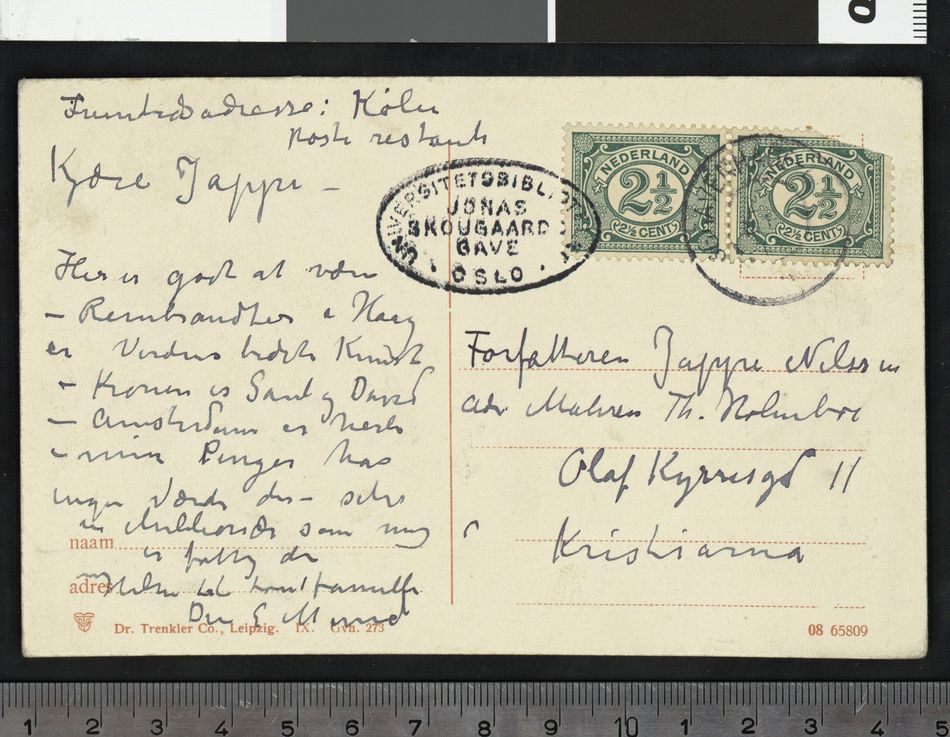 Fremtidsadresse: Köln
poste restante
Kjære Jappe –
Her er godt at være
– Rembrandter i Haag
er Verdens bedste Kunst
– Kronen er Saul og David
– Amsterdam er
– mine Penger har
ingen Værdi der – selv
en Millionær som mig
er fattig der
Hilsen til
Din E Munch
naam
adres
Dr. Trenkler Co., Leipzig. IX. Gvh. 273
UNIVERSITETSBIBLIOTEKET
JONAS
SKOUGAARDS
GAVE
OSLO
NEDERLAND
2½
(2½ CENT)
NEDERLAND
2½
(2½ CENT)
Forfatteren Jappe Nilssen
adr Maleren Th. Holmboe
Olaf Kyrresgd 11
Kristiania
08 65809
1 2 3 4 5 6 7 8 9 10 1 2 3 4 5